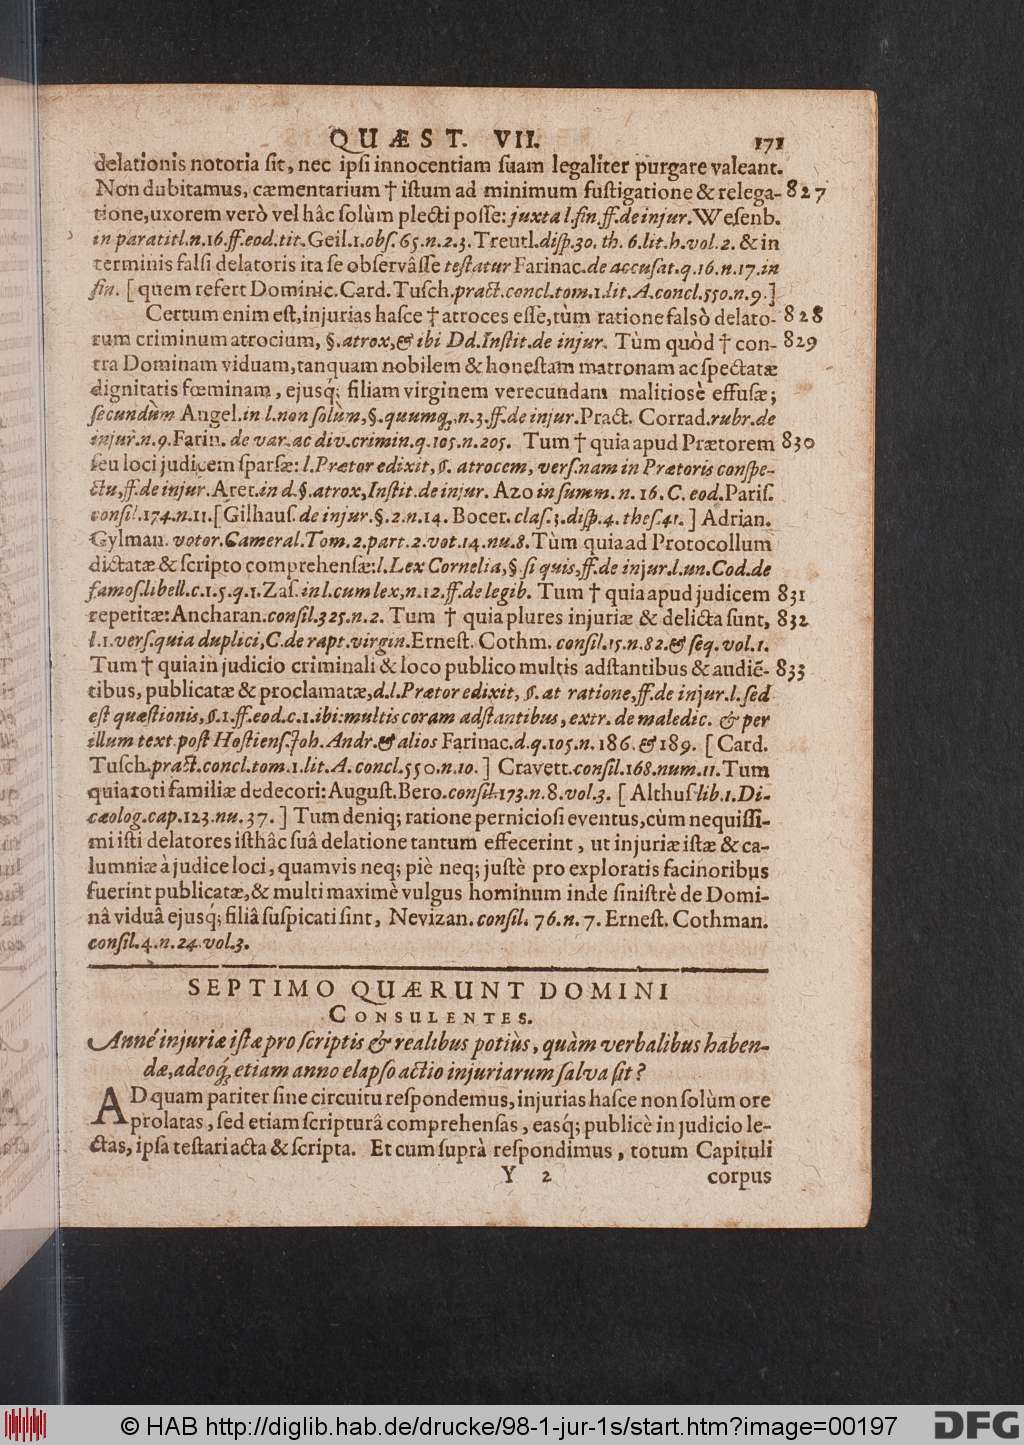 QUÆST. VII. 171
delationis notoria ſit, nec ipſi innocentiam ſuam legaliter purgare valeant.
Non dubitamus, cæmentarium † iſtum ad minimum fuſtigatione & relega- 827
tione, uxorem verò vel hâc ſolùm plecti poſſe: juxta l. fin. ff. de injur. Weſenb.
in paratitl. n. 16. ff. eod. tit. Geil. 1. obſ. 65. n. 2. 3. Treutl. diſp. 30. th. 6. lit. h. vol. 2. & in
terminis falſi delatoris ita ſe obſervâſſe teſtatur Farinac. de accuſat. q. 16. n. 17. in
fin. [ quem refert Dominic. Card. Tuſch. pract. concl. tom. 1. lit. A. concl. 550. n. 9. ]
Certum enim eſt, injurias haſce † atroces eſſe, tùm ratione falsò delato- 828
rum criminum atrocium, §. atrox, & ibi Dd. Inſtit. de injur. Tùm quòd † con- 829
tra Dominam viduam, tanquam nobilem & honeſtam matronam ac ſpectatæ
dignitatis fœminam, ejusq́; filiam virginem verecundam malitiosè effuſæ;
ſecundùm Angel. in l. non ſolùm, §. quumq́, n. 3. ff. de injur. Pract. Corrad. rubr. de
injur. n. 9. Farin. de var. ac div. crimin. q. 105. n. 205. Tum † quia apud Prætorem 830
ſeu loci judicem ſparſæ: l. Prætor edixit, §. atrocem, verſ. nam in Prætoris conſpe-
ctu, ff. de injur. Aret. in d. §. atrox, Inſtit. de injur. Azo in ſumm. n. 16. C. eod. Pariſ.
conſil. 174. n. 11. [ Gilhauſ. de injur. §. 2. n. 14. Bocer. claſ. 3. diſp. 4. theſ. 41. ] Adrian.
Gylman. votor. Cameral. Tom. 2. part. 2. vot. 14. nu. 8. Tùm quia ad Protocollum
dictatæ & ſcripto comprehenſæ: l. Lex Cornelia, §. ſi quis, ff. de injur. l. un. Cod. de
famoſ. libell. c. 1. 5. q. 1. Zaſ. in l. cum lex, n. 12. ff. de legib. Tum † quia apud judicem 831
repetitæ: Ancharan. conſil. 325. n. 2. Tum † quia plures injuriæ & delicta ſunt, 832
l. 1. verſ. quia duplici, C. de rapt. virgin. Erneſt. Cothm. conſil. 15. n. 82. & ſeq. vol. 1.
Tum † quia in judicio criminali & loco publico multis adſtantibus & audiē- 833
tibus, publicatæ & proclamatæ, d. l. Prætor edixit, §. at ratione, ff. de injur. l. ſed
eſt quæſtionis, §. 1. ff. eod. c. 1. ibi: multis coram adſtantibus, extr. de maledic. & per
illum text. poſt Hoſtienſ. Joh. Andr. & alios Farinac. d. q. 105. n. 186. & 189. [ Card.
Tuſch. pract. concl. tom. 1. lit. A. concl. 550. n. 10. ] Cravett. conſil. 168. num. 11. Tum
quia toti familiæ dedecori: Auguſt. Bero. conſil. 173. n. 8. vol. 3. [ Althuſ. lib. 1. Di-
cæolog. cap. 123. nu. 37. ] Tum deniq; ratione pernicioſi eventus, cùm nequiſſi-
mi iſti delatores iſthâc ſuâ delatione tantum effecerint, ut injuriæ iſtæ & ca-
lumniæ à judice loci, quamvis neq; piè neq; juſtè pro exploratis facinoribus
fuerint publicatæ, & multi maximè vulgus hominum inde ſiniſtrè de Domi-
nâ viduâ ejusq́; filiâ ſuſpicati ſint, Nevizan. conſil. 76. n. 7. Erneſt. Cothman.
conſil. 4. n. 24. vol. 3.
SEPTIMO QUÆRUNT DOMINI
CONSULENTES.
Anné injuriæ iſtæ pro ſcriptis & realibus potiùs, quàm verbalibus haben-
dæ, adeoq́, etiam anno elapſo actio injuriarum ſalva ſit?
AD quam pariter ſine circuitu reſpondemus, injurias haſce non ſolùm ore
prolatas, ſed etiam ſcripturâ comprehenſas, easq́; publicè in judicio le-
ctas, ipſa teſtari acta & ſcripta. Et cum ſuprà reſpondimus, totum Capituli
Y 2 corpus
© HAB http://diglib.hab.de/drucke/98-1-jur-1s/start.htm?image=00197
DFG